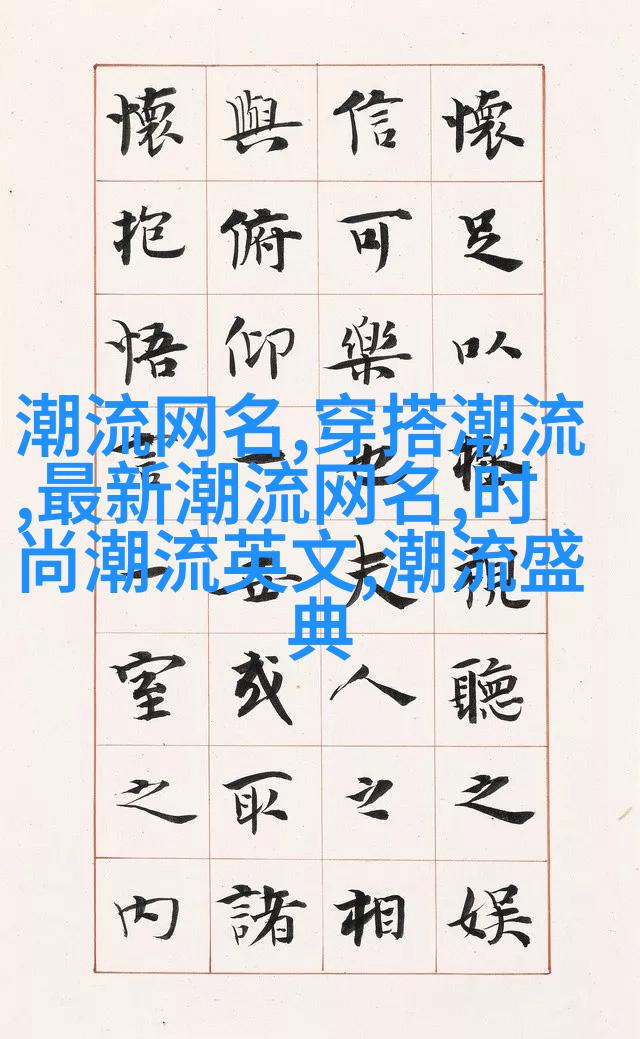 懷足以極視聽之娛
信可樂也夫人之相
與俯仰一世或取諸
懷抱悟言一室之內
潮流网名,穿搭潮流
,最新潮流网名,时
尚潮流英文,潮流盛
典